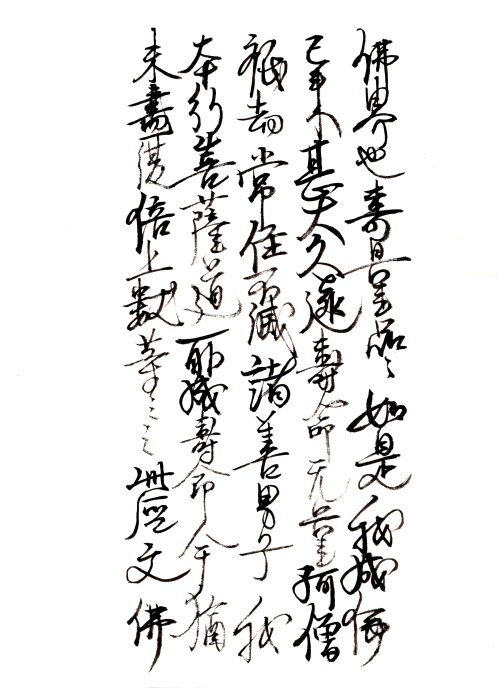 佛界也壽量品云如是我成佛
已来甚大久遠壽命无量阿僧
祇劫常住不滅諸善男子我
本行菩薩道所成壽命今猶
未盡復倍上數等云云此經文佛